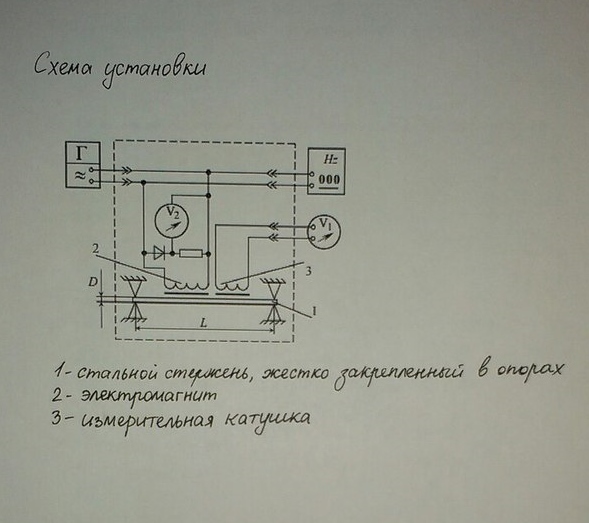 Схема установки
Г
≈
Hz
000
V₂
V₁
2
3
D
1
L
1- стальной стержень, жестко закрепленный в опорах
2- электромагнит
3- измерительная катушка